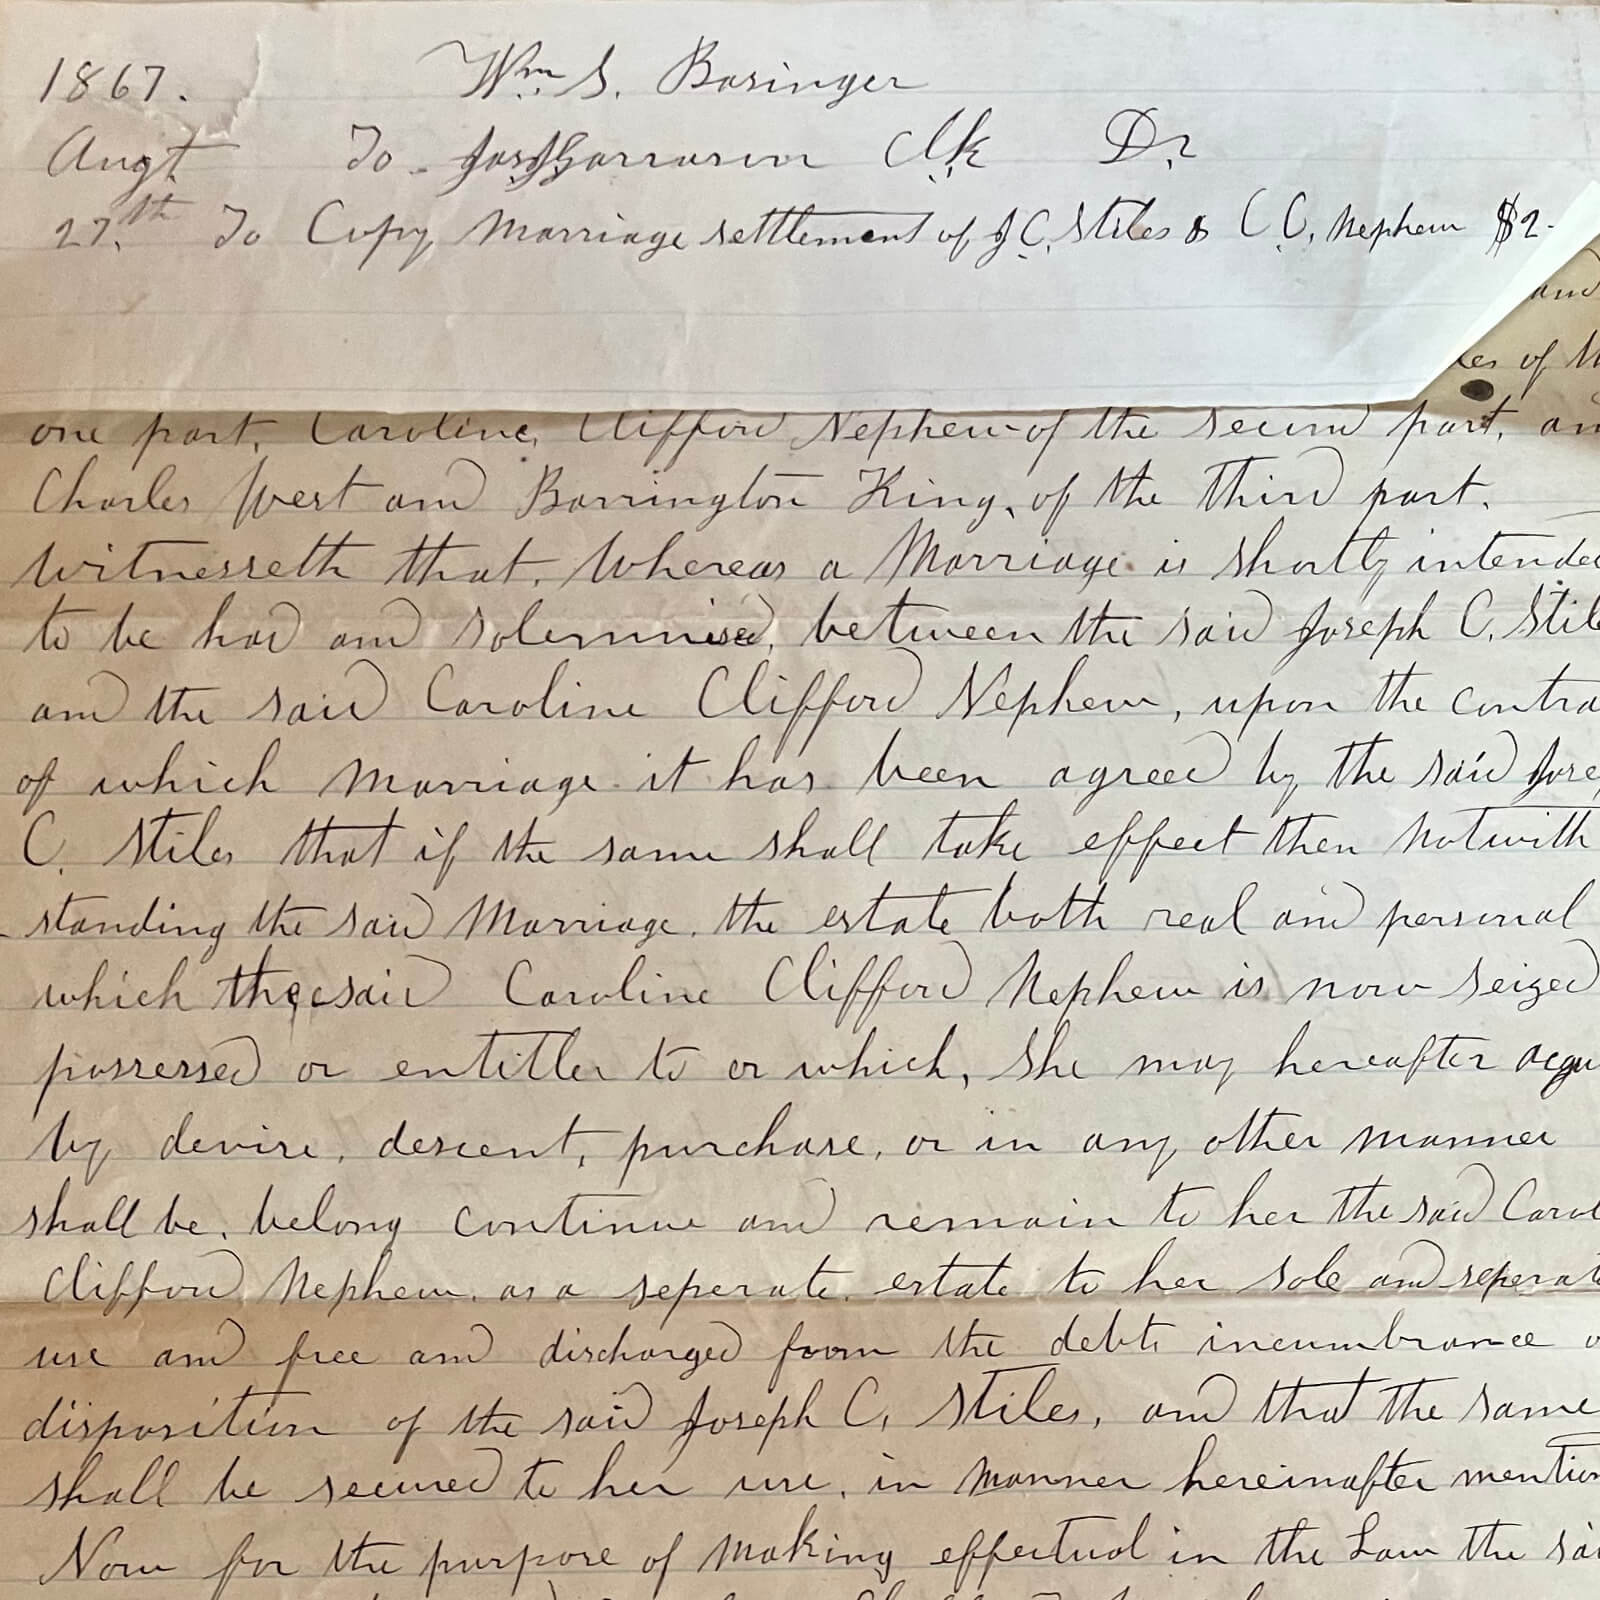 1867. Wm. S. Basinger
Augt To Clk Dr
27.th To Copy Marriage settlement of J. C. Stiles & C C. Nephew $2-
and
of
one part, Caroline, Clifford Nephew of the second part, an
Charles West and Barrington King, of the third part.
Witnesseth that, Whereas a Marriage is shortly intended
to be had and solemnised, between the said Joseph C. Stil
and the said Caroline Clifford Nephew, upon the contra
of which Marriage it has been agreed by the said Jose
C. Stiles that if the same shall take effect then Notwith
-standing the said Marriage. the estate both real and personal
which the said Caroline Clifford Nephew is now seized
possessed or entitled to or which, She may hereafter acqu
by devise, descent, purchase, or in any other manner
shall be, belong continue and remain to her the said Carol
Clifford Nephew. as a seperate. estate to her sole and seperate
use and free and discharged from the debts incumbrance o
disposition of the said Joseph C, Stiles, and that the same
shall be secured to her use, in manner hereinafter mention
Now for the purpose of Making effectual in the Law the sai